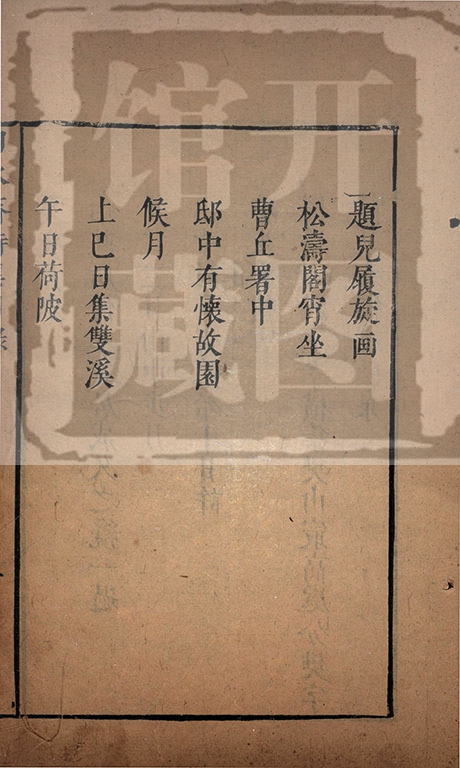 題兒履旋画
松濤閣宵坐
曹丘署中
邸中有懷故園
候月
上巳日集雙溪
午日荷陂
开图馆藏